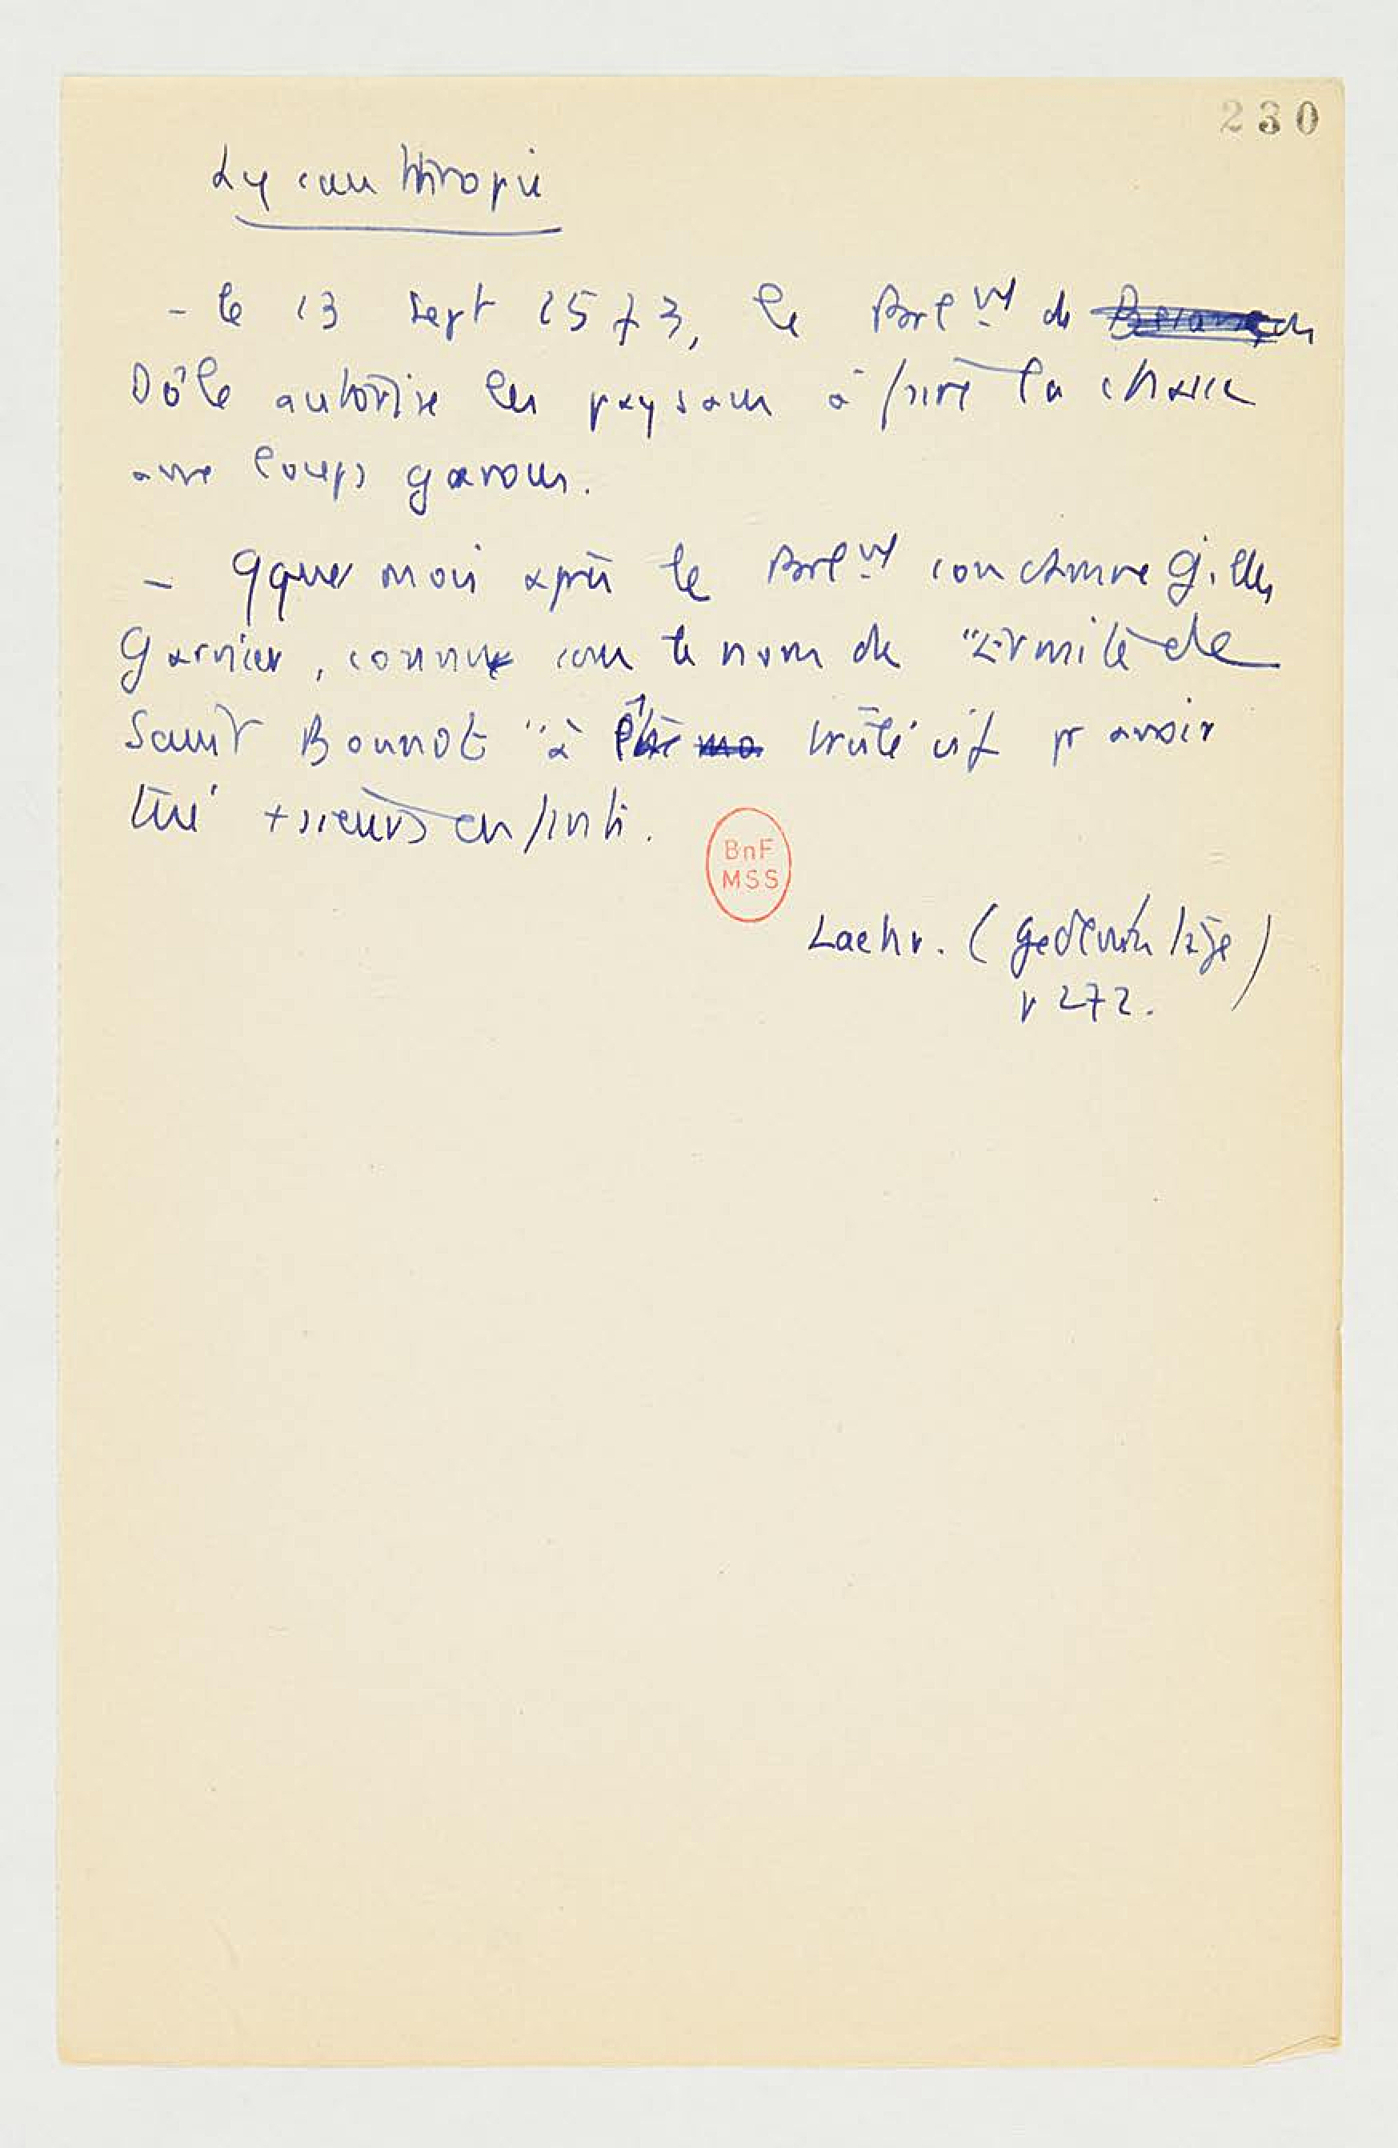 230
Lycanthropie
- le 13 sept 1573, le Parl^nt de Besançon de
Dôle autorise les paysans à faire la chasse
aux loups garous.
- Qques mois après le Parl^nt condamne Gilles
Garnier, connu sous le nom de "Ermite de
Saint Bonnot" à être brûlé vif pr avoir
tué +sieurs enfants.
BnF
MSS
Laehr. (Gedenktage)
p 272.